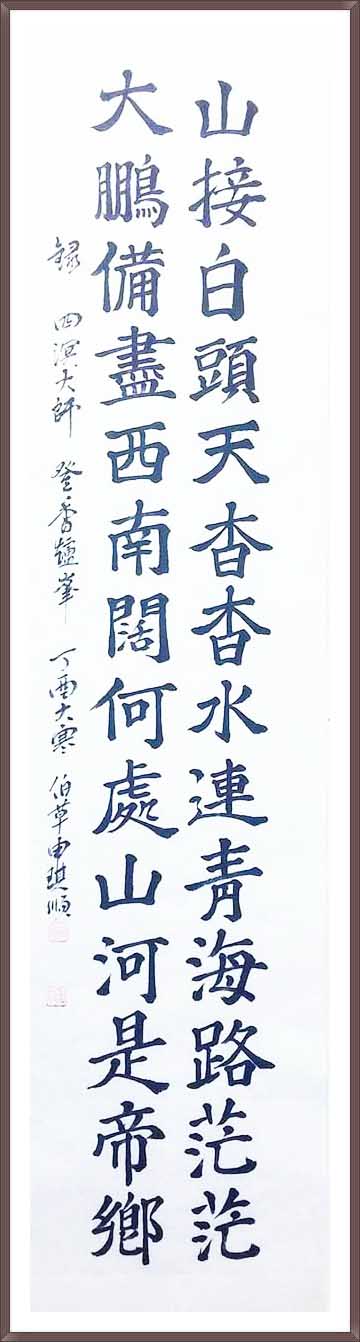 山接白頭天杳杳水連青海路茫茫
大鵬備盡西南闊何處山河是帝鄉
錄 四溟大師 登香爐峯 丁酉大寒 伯草申琪順